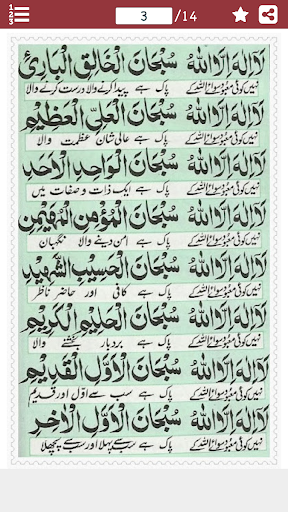 3 /14
لَآ اِلٰهَ اِلَّا اللّٰهُ سُبْحَانَ الْخَالِقِ الْبَارِئِ
نہیں کوئی معبود سوائے اللہ کے پاک ہے پیدا کرنے والا درست کرنے والا
لَآ اِلٰهَ اِلَّا اللّٰهُ سُبْحَانَ الْعَلِیِّ الْعَظِیْمِ
نہیں کوئی معبود سوائے اللہ کے پاک ہے عالی شان عظمت والا
لَآ اِلٰهَ اِلَّا اللّٰهُ سُبْحَانَ الْوَاحِدِ الْاَحَدِ
نہیں کوئی معبود سوائے اللہ کے پاک ہے ایک ذات و صفات میں
لَآ اِلٰهَ اِلَّا اللّٰهُ سُبْحَانَ الْمُؤْمِنِ الْمُهَیْمِنِ
نہیں کوئی معبود سوائے اللہ کے پاک ہے امن دینے والا نگہبان
لَآ اِلٰهَ اِلَّا اللّٰهُ سُبْحَانَ الْحَسِیْبِ الشَّهِیْدِ
نہیں کوئی معبود سوائے اللہ کے پاک ہے کافی اور حاضر ناظر
لَآ اِلٰهَ اِلَّا اللّٰهُ سُبْحَانَ الْحَلِیْمِ الْکَرِیْمِ
نہیں کوئی معبود سوائے اللہ کے پاک ہے بردبار بخشنے والا
لَآ اِلٰهَ اِلَّا اللّٰهُ سُبْحَانَ الْاَوَّلِ الْقَدِیْمِ
نہیں کوئی معبود سوائے اللہ کے پاک ہے سب سے اول اور قدیم
لَآ اِلٰهَ اِلَّا اللّٰهُ سُبْحَانَ الْاَوَّلِ الْاٰخِرِ
نہیں کوئی معبود سوائے اللہ کے پاک ہے سب سے پہلا اور سب سے پچھلا